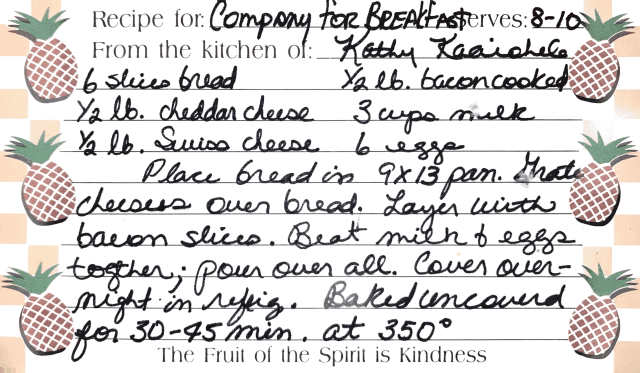 Recipe for: Company for BREAKfAst Serves: 8-10
From the kitchen of: Kathy
6 slices bread ½ lb. bacon cooked
½ lb. cheddar cheese 3 cups milk
½ lb. Swiss cheese 6 eggs
Place bread in 9x13 pan. Grate
cheeses over bread. Layer with
bacon slices. Beat milk & eggs
together; pour over all. Cover over-
night in refrig. Baked uncoverd
for 30-45 min. at 350°
The Fruit of the Spirit is Kindness